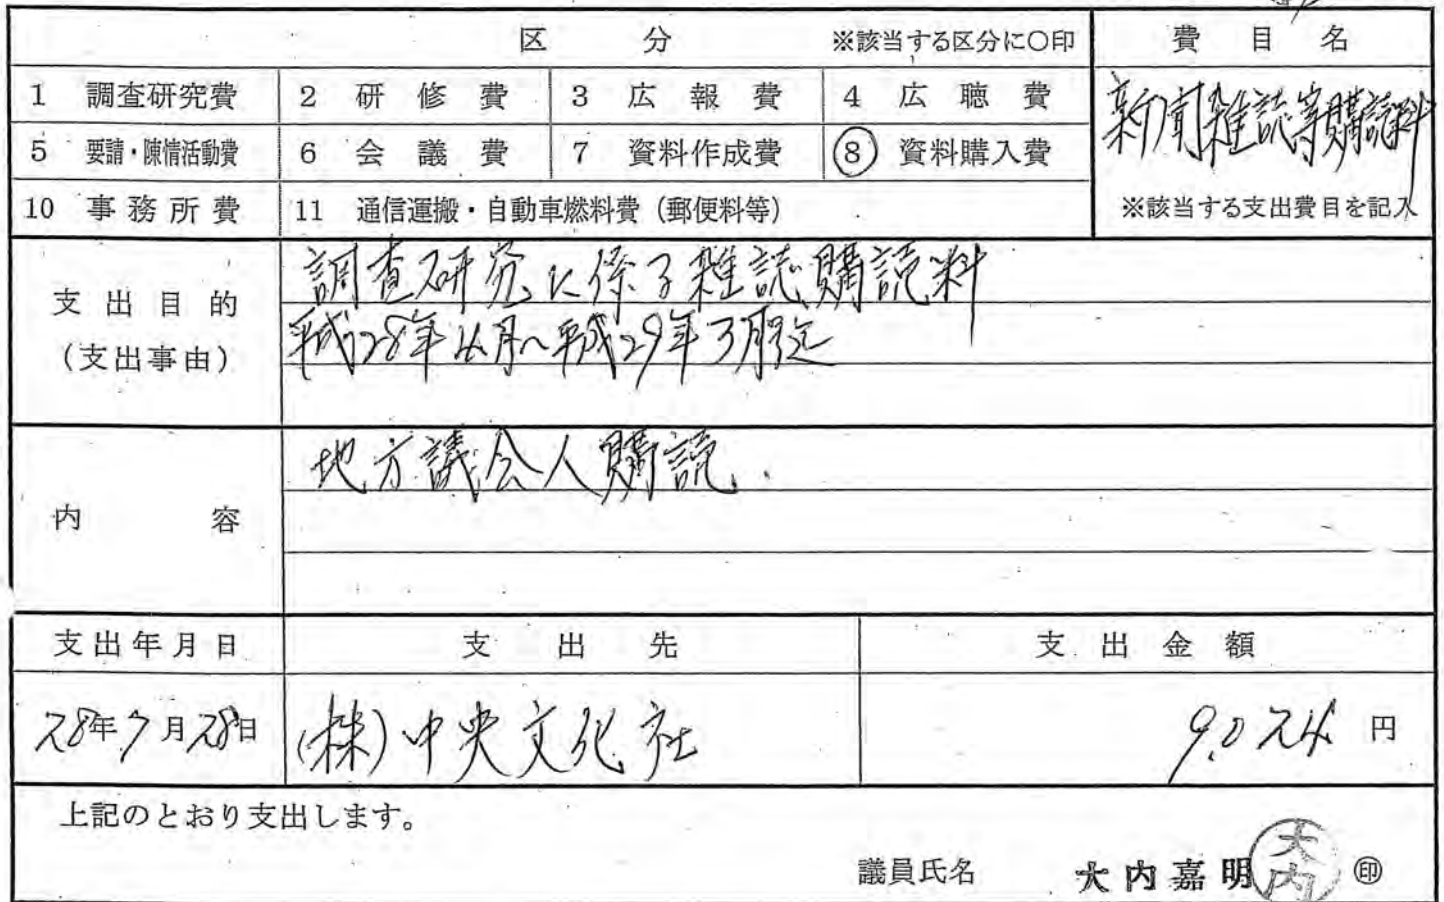 区 分 ※該当する区分に○印 費目名
1 調査研究費 2 研修費 3 広報費 4 広聴費
新聞雑誌等購読料
5 要請・陳情活動費 6 会議費 7 資料作成費 ⑧ 資料購入費
10 事務所費 11 通信運搬・自動車燃料費(郵便料等) ※該当する支出費目を記入
支出目的
(支出事由)
調査研究に係る雑誌購読料
平成28年4月~平成29年3月迄
内容
地方議会人購読.
支出年月日 支出先 支出金額
28年7月28日 (株)中央文化社 9.024 円
上記のとおり支出します。
議員氏名 大内嘉明 大内 ㊞